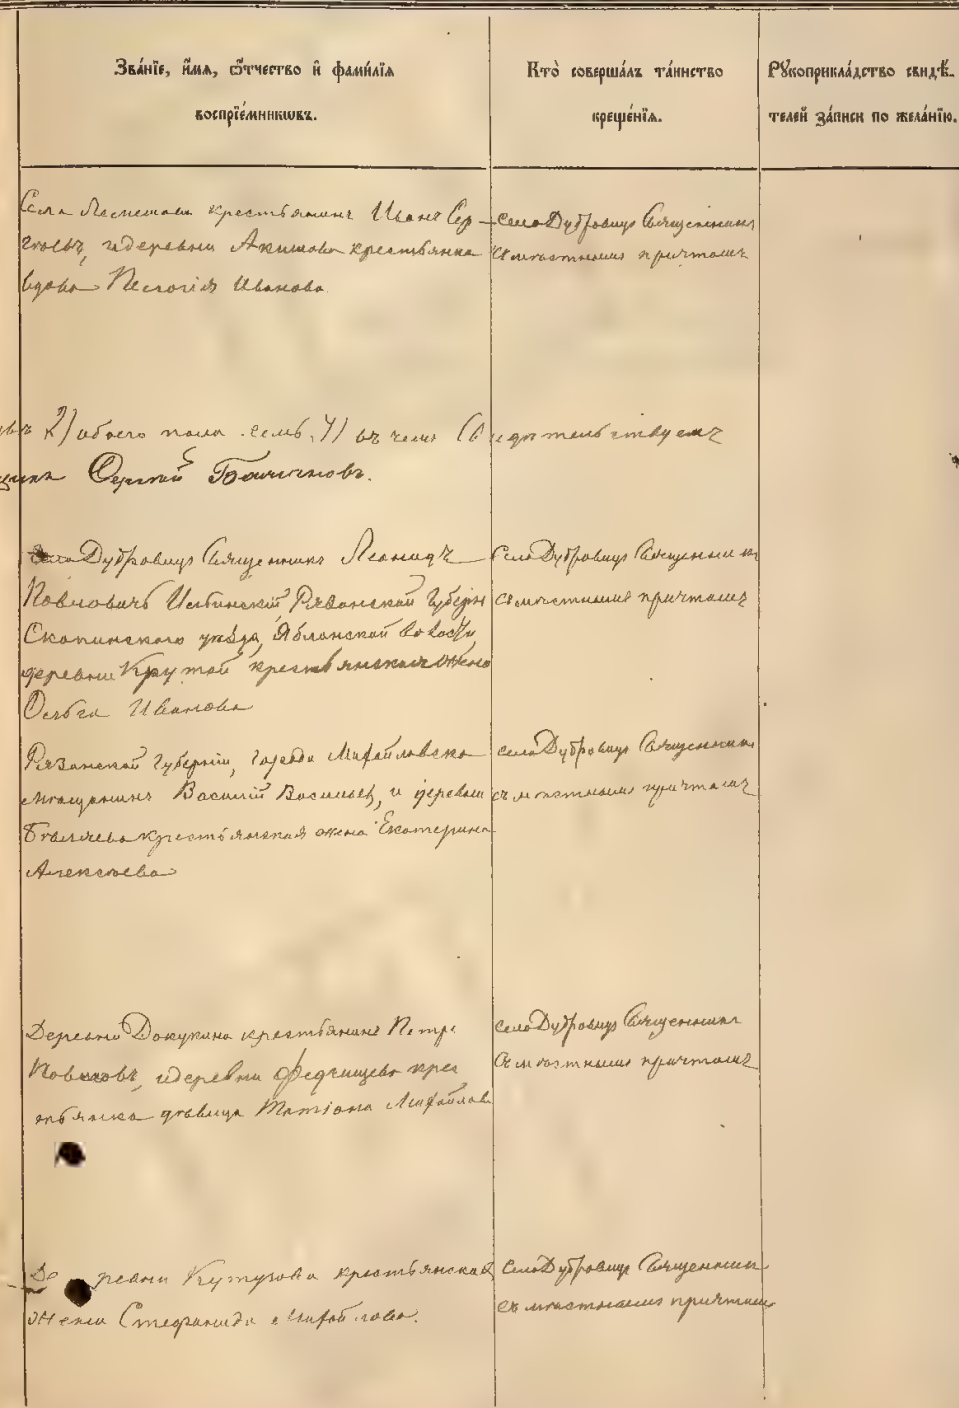 Зва́нїе, и҆́мѧ, ѻ҆́тчество и҆ фами́лїѧ
воспрїе́мникѡвъ.
Кто̀ соверша́лъ та́инство
креще́нїѧ.
Рꙋкоприкла́дство свидѣ́-
телей за́писи по жела́нїю.
Села крестьянинъ Иванъ Сер-
гѣевъ, и деревни Акишова крестьянка
вдова Пелагія Иванова
Село Дубровицъ Священникъ
съ мѣстнымъ причтомъ
2) обоего пола семь 7) въ чемъ Свидѣтельствуемъ
Сергій
Дубровицъ Священникъ Леонидъ
Павловичъ Рязанской Губерні
Скопинскаго уѣзда, Яблонской волости,
деревни Крутой крестьянская жена
Ольга Иванова
Село Дубровицъ Священникъ
съ мѣстнымъ причтомъ
Рязанской Губерніи, города Михайловска
мѣщанинъ Василій Васильевъ, и деревни
Бѣляева крестьянская жена Екатерина
Алексѣева
Село Дубровицъ Священникъ
съ мѣстнымъ причтомъ
Деревни Докукина крестьянинъ Петръ
Павловъ, и деревни Федчищева крес
тьянка дѣвица Татіана Михайлова
Село Дубровицъ Священникъ
съ мѣстнымъ причтомъ
Деревни Кутузова крестьянская
жена Стефанида Михайлова.
Село Дубровицъ Священникъ
съ мѣстнымъ причтомъ